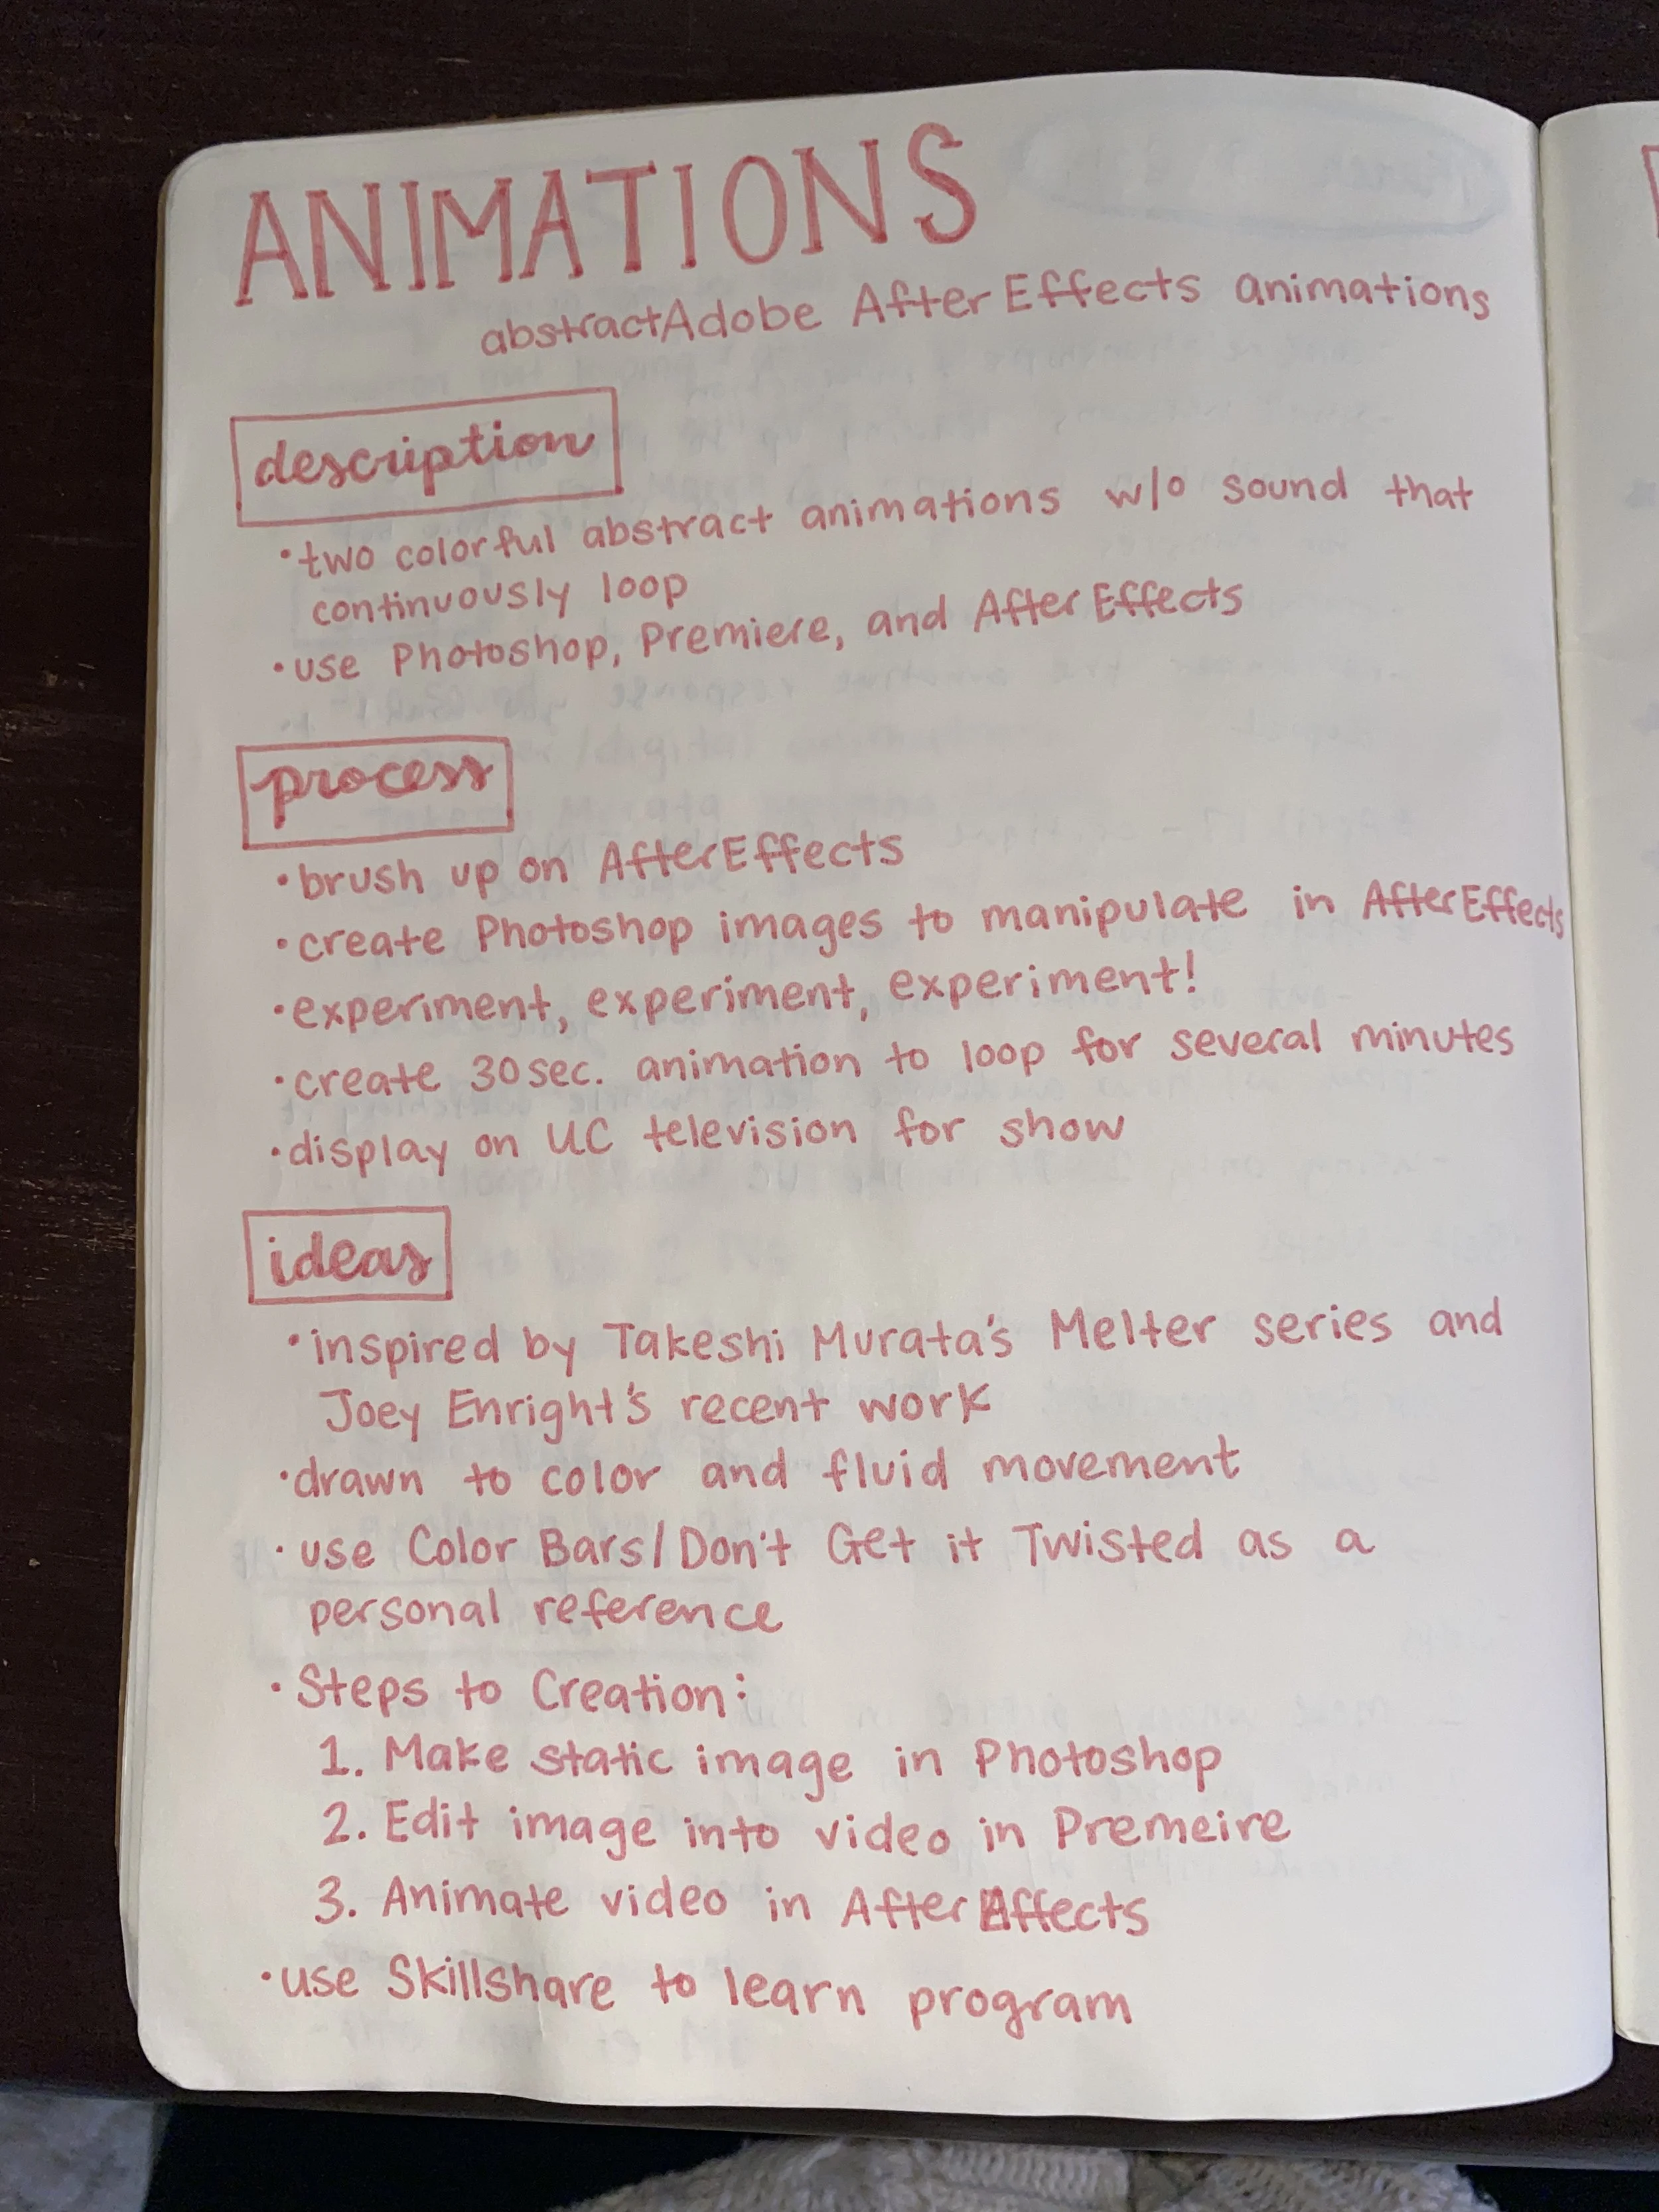 ANIMATIONS
abstract Adobe After Effects animations
description
•two colorful abstract animations w/o sound that
continuously loop
•use Photoshop, Premiere, and After Effects
process
•brush up on After Effects
•create Photoshop images to manipulate in After Effects
•experiment, experiment, experiment!
•create 30 sec. animation to loop for several minutes
•display on UC television for show
ideas
•inspired by Takeshi Murata's Melter series and
Joey Enright's recent work
•drawn to color and fluid movement
•use Color Bars/Don't Get it Twisted as a
personal reference
•Steps to Creation:
1. Make static image in Photoshop
2. Edit image into video in Premeire
3. Animate video in After Effects
•use Skillshare to learn program